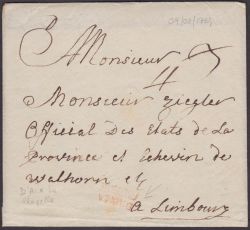 09/02/1784
Monsieur
4
Monsieur Ziegler
Official Des Etats de La
Province et Echevin de
Walhorn et
a Limbourg
D'Aix la